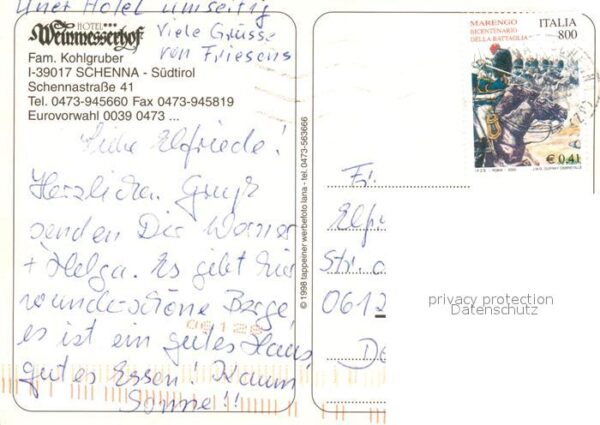 Unser Hotel umseitig
Viele Grüsse
von Friesens
HOTEL***
Weinmesserhof
Fam. Kohlgruber
I-39017 SCHENNA - Südtirol
Schennastraße 41
Tel. 0473-945660 Fax 0473-945819
Eurovorwahl 0039 0473 ...
Liebe Elfriede!
Herzliche Grüße
senden Dir Werner
+ Helga. Es gibt hier
wunderschöne Berge,
es ist ein gutes Haus
gutes Essen. Kaum
Sonne!!
© 1998 tappeiner werbefoto lana - tel. 0473-563666
MARENGO
BICENTENARIO
DELLA BATTAGLIA
ITALIA
800
€ 0,41
Fr.
Elfr
Str.
0612
De
06122
privacy protection
Datenschutz